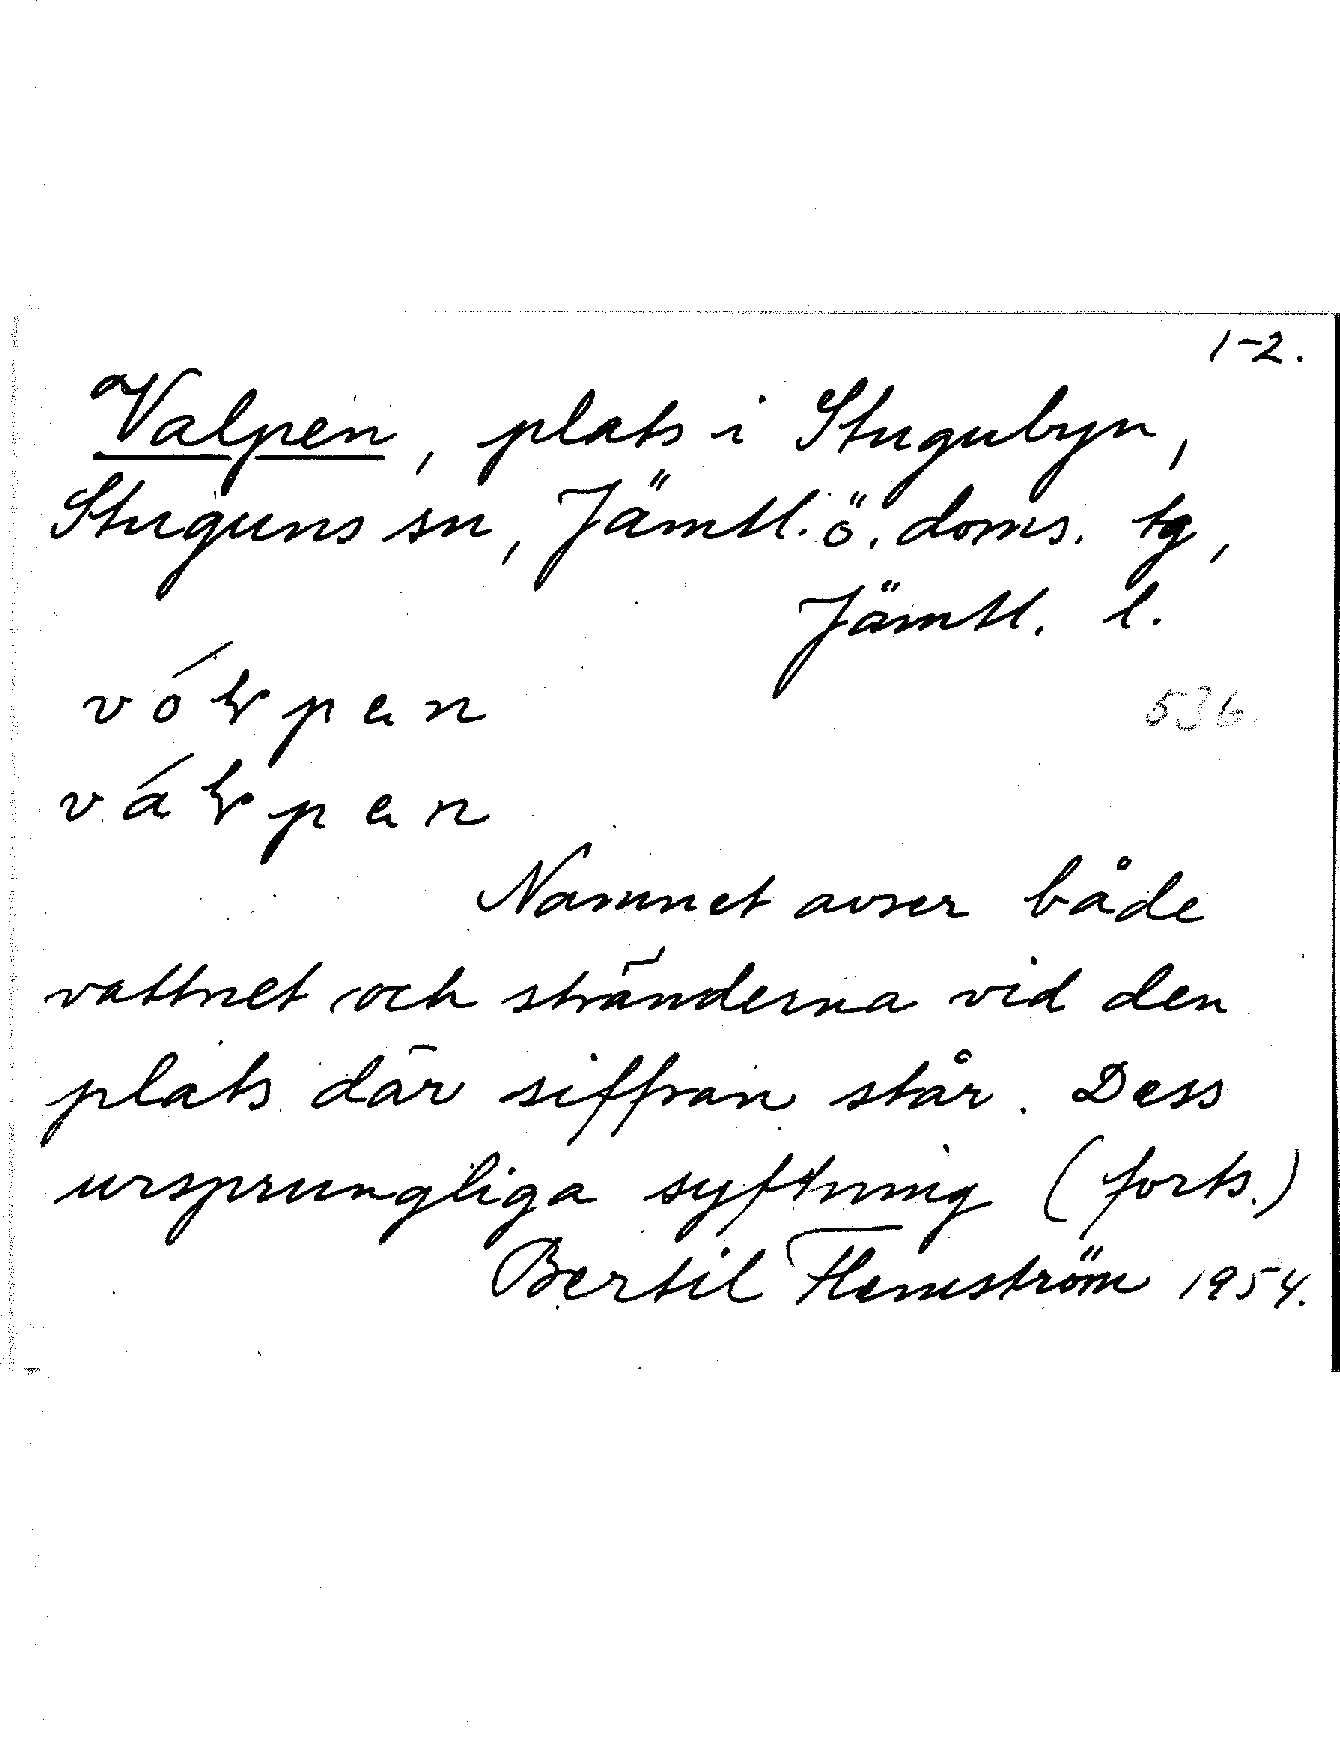 1-2.
Valpen, plats i Stugubyn,
Stuguns sn, Jämtl. ö. doms. tg,
Jämtl. l.
536
Namnet avser både
vattnet och stränderna vid den
plats där siffran står. Dess
ursprungliga syftning (forts.)
Bertil Flemström 1954.